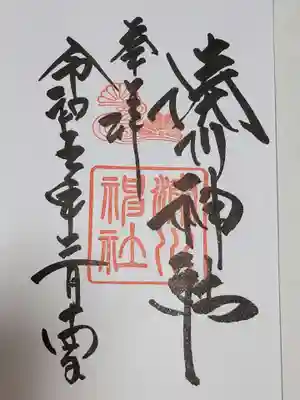 湊川神社
奉拝
令和五年二月十四日
湊川
神社